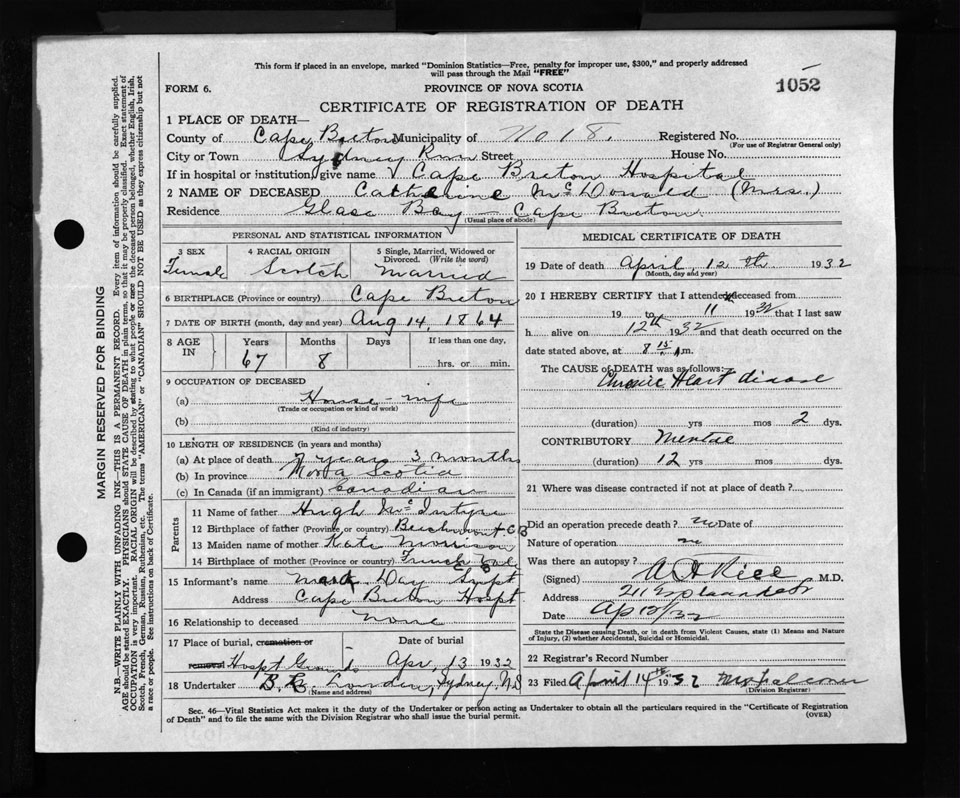 This form if placed in an envelope, marked "Dominion Statistics—Free, penalty for improper use, $300," and properly addressed
will pass through the Mail "FREE"
FORM 6.
PROVINCE OF NOVA SCOTIA
1052
CERTIFICATE OF REGISTRATION OF DEATH
1 PLACE OF DEATH—
County of Cape Breton Municipality of No 18. Registered No.
(For use of Registrar General only)
City or Town Sydney River Street House No.
If in hospital or institution, give name Cape Breton Hospital
2 NAME OF DECEASED Catherine McDonald (Mrs.)
Residence Glace Bay — Cape Breton
(Usual place of abode)
PERSONAL AND STATISTICAL INFORMATION
3 SEX 4 RACIAL ORIGIN 5 Single, Married, Widowed or
Divorced. (Write the word)
Female Scotch Married
6 BIRTHPLACE (Province or country) Cape Breton
7 DATE OF BIRTH (month, day and year) Aug 14, 1864
8 AGE IN Years Months Days If less than one day,
67 8 hrs. or min.
9 OCCUPATION OF DECEASED
(a) House-wife
(Trade or occupation or kind of work)
(b)
(Kind of industry)
10 LENGTH OF RESIDENCE (in years and months)
(a) At place of death 7 years 3 months
(b) In province Nova Scotia
(c) In Canada (if an immigrant) Canadian
Parents
11 Name of father Hugh McIntyre
12 Birthplace of father (Province or country) Beechmont C B
13 Maiden name of mother Kate Morrison
14 Birthplace of mother (Province or country) French
15 Informant's name Mark Day Supt
Address Cape Breton Hospt.
16 Relationship to deceased None
17 Place of burial, cremation or Date of burial
removal Hospt. Grounds Apr. 13 1932
18 Undertaker Sydney, N.S
(Name and address)
MEDICAL CERTIFICATE OF DEATH
19 Date of death April 12th 1932
(Month, day and year)
20 I HEREBY CERTIFY that I attended deceased from
19 to 11 1932 that I last saw
h alive on 12th 1932 and that death occurred on the
date stated above, at 8 15 Am.
The CAUSE of DEATH was as follows:—
Chronic Heart disease
(duration) yrs mos 2 dys.
CONTRIBUTORY Mental
(duration) 12 yrs mos dys.
21 Where was disease contracted if not at place of death?
Did an operation precede death? no Date of
Nature of operation no
Was there an autopsy?
(Signed) Rice M.D.
Address 211 Esplanade
Date Ap 13/32
State the Disease causing Death, or in death from Violent Causes, state (1) Means and Nature
of Injury, (2) whether Accidental, Suicidal or Homicidal.
22 Registrar's Record Number
23 Filed April 14th 1932
(Division Registrar)
Sec. 46—Vital Statistics Act makes it the duty of the Undertaker or person acting as Undertaker to obtain all the particulars required in the "Certificate of Registration
of Death" and to file the same with the Division Registrar who shall issue the burial permit.
(OVER)
MARGIN RESERVED FOR BINDING
N.B.—WRITE PLAINLY WITH UNFADING INK—THIS IS A PERMANENT RECORD. Every item of information should be carefully supplied.
AGE should be stated EXACTLY. PHYSICIANS should STATE CAUSE OF DEATH in plain terms, so that it may be properly classified. Exact statement of
OCCUPATION is very important. RACIAL ORIGIN will be described by stating to what people or race the deceased person belonged, whether English, Irish,
Scotch, French, German, Russian, Ruthenian, etc. The terms "AMERICAN" or "CANADIAN" SHOULD NOT BE USED as they express citizenship but not
a race or people. See instructions on back of Certificate.